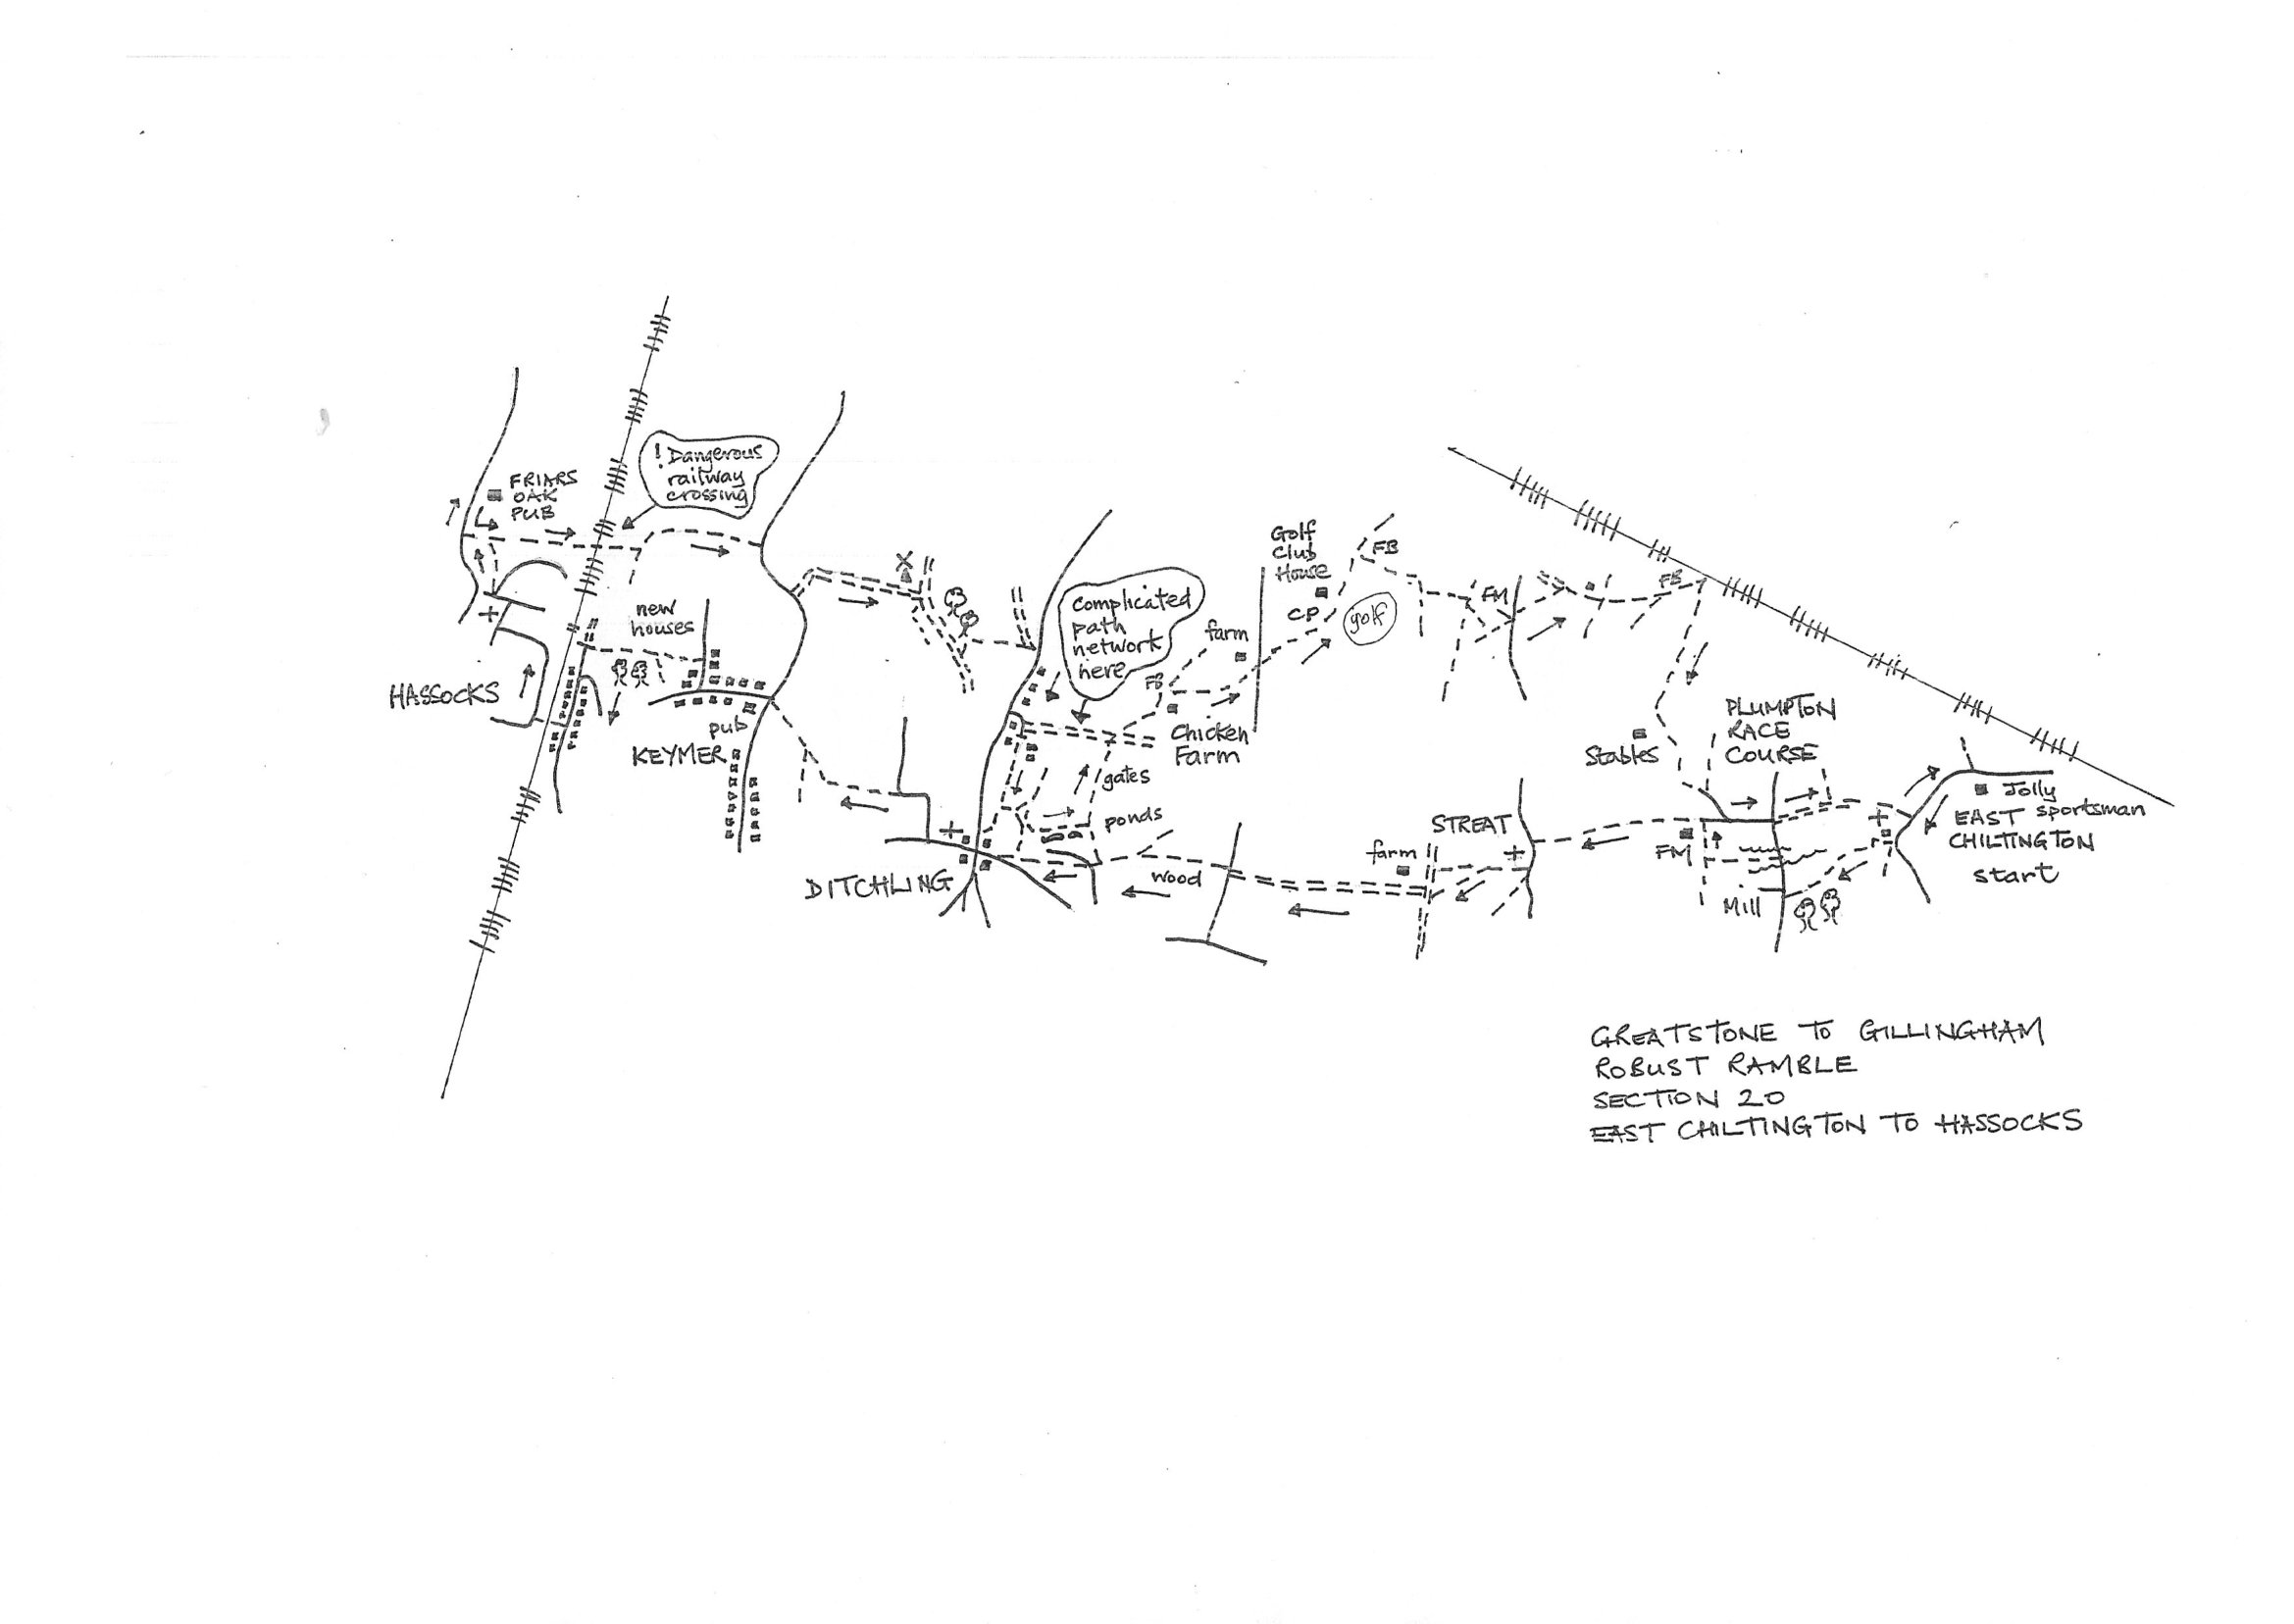 FRIARS
OAK
PUB
! Dangerous
railway
crossing
new
houses
HASSOCKS
pub
KEYMER
X
complicated
path
network
here
FB
farm
Chicken
Farm
gates
ponds
DITCHLING
wood
Golf
Club
House
CP
golf
FB
FM
FB
Stables
PLUMPTON
RACE
COURSE
STREAT
farm
FM
Mill
Jolly
sportsman
EAST
CHILTINGTON
start
GREATSTONE TO GILLINGHAM
ROBUST RAMBLE
SECTION 20
EAST CHILTINGTON TO HASSOCKS